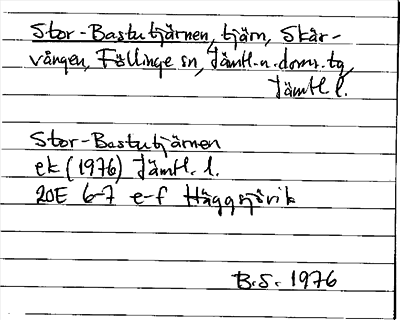 Stor-Bastutjärnen, tjärn, Skår-
vången, Föllinge sn, Jämtl. n. doms. tg,
Jämtl l.
Stor-Bastutjärnen
ek (1976) Jämtl. l.
20E 6-7 e-f Häggsjövik
B.S. 1976